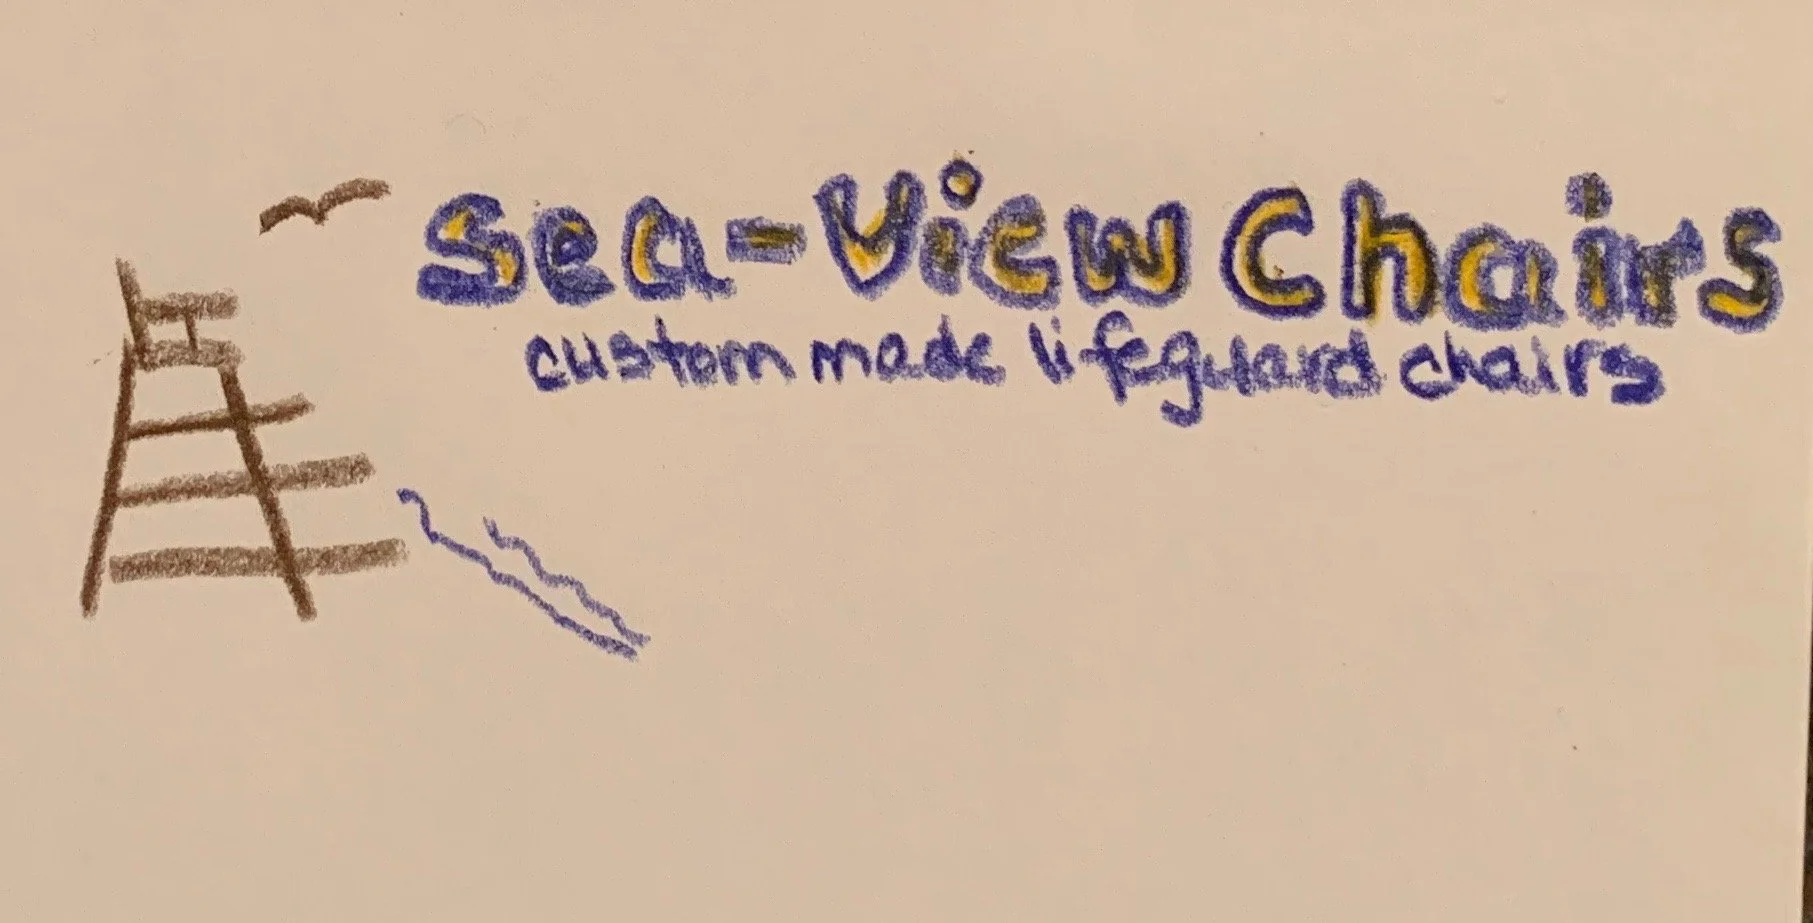 Sea-View Chairs
custom made lifeguard chairs